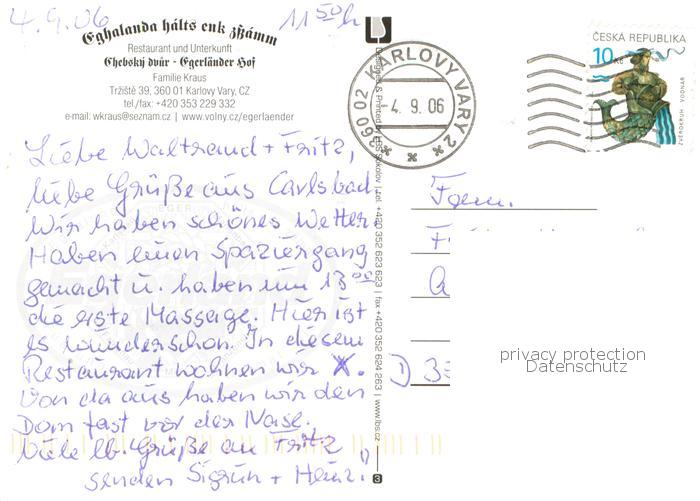 4.9.06 11 50h
Eghalanda hålts enk zßamm
Restaurant und Unterkunft
Chebský dvůr - Egerländer Hof
Familie Kraus
Tržiště 39, 360 01 Karlovy Vary, CZ
tel./fax: +420 353 229 332
e-mail: wkraus@seznam.cz | www.volny.cz/egerlaender
Liebe Waltraud + Fritz,
liebe Grüße aus Carlsbad.
Wir haben schönes Wetter.
Haben einen Spaziergang
gemacht u. haben um 13 00
die erste Massage. Hier ist
es wunderschön. In diesem
Restaurant wohnen wir X.
Von da aus haben wir den
Dom fast vor der Nase.
Viele lb. Grüße an Fritz
senden Sigrun + Heinz!
Designed & Printed by LBS Sokolov | tel. +420 352 623 623 | fax +420 352 624 263 | www.lbs.cz
3
360 02 KARLOVY VARY 2
4. 9. 06
ČESKÁ REPUBLIKA
10 Kč
ZVĚROKRUH VODNÁŘ
Fam.
F
D 3
privacy protection
Datenschutz